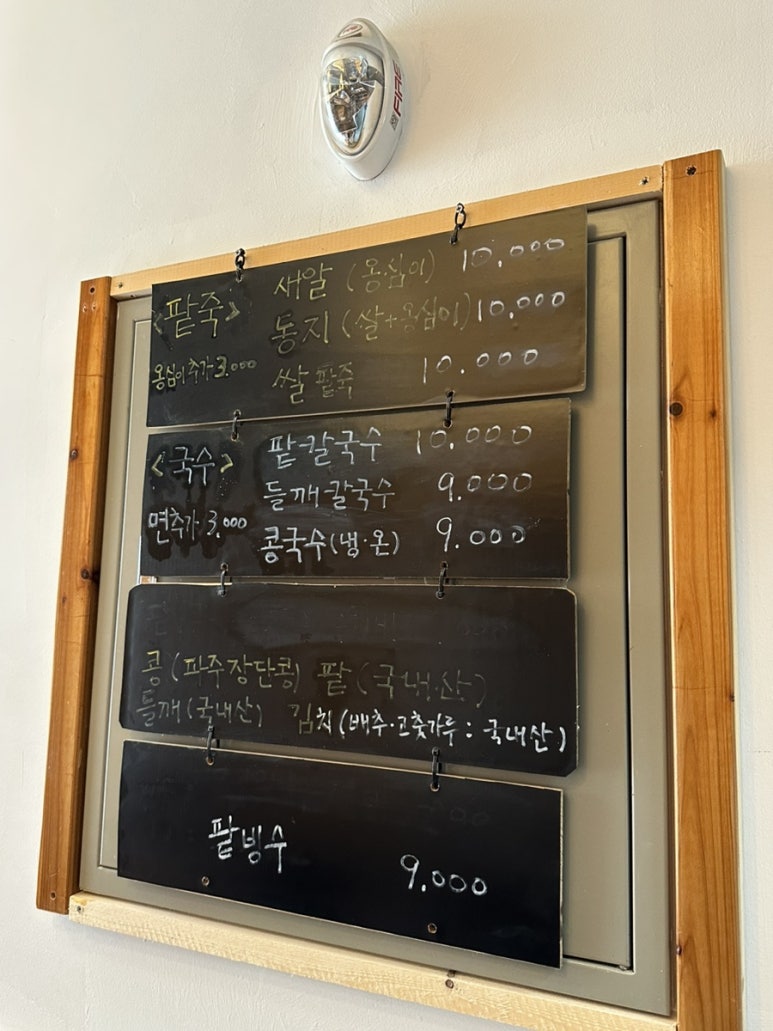 FIRE
<팥죽> 새알 (옹심이) 10.000
동지 (쌀+옹심이) 10.000
옹심이추가 3.000 쌀팥죽 10.000
<국수> 팥칼국수 10.000
들깨칼국수 9.000
면추가 3.000 콩국수(냉·온) 9.000
콩 (파주장단콩) 팥 (국내산)
들깨 (국내산) 김치 (배추·고춧가루 : 국내산)
팥빙수 9.000